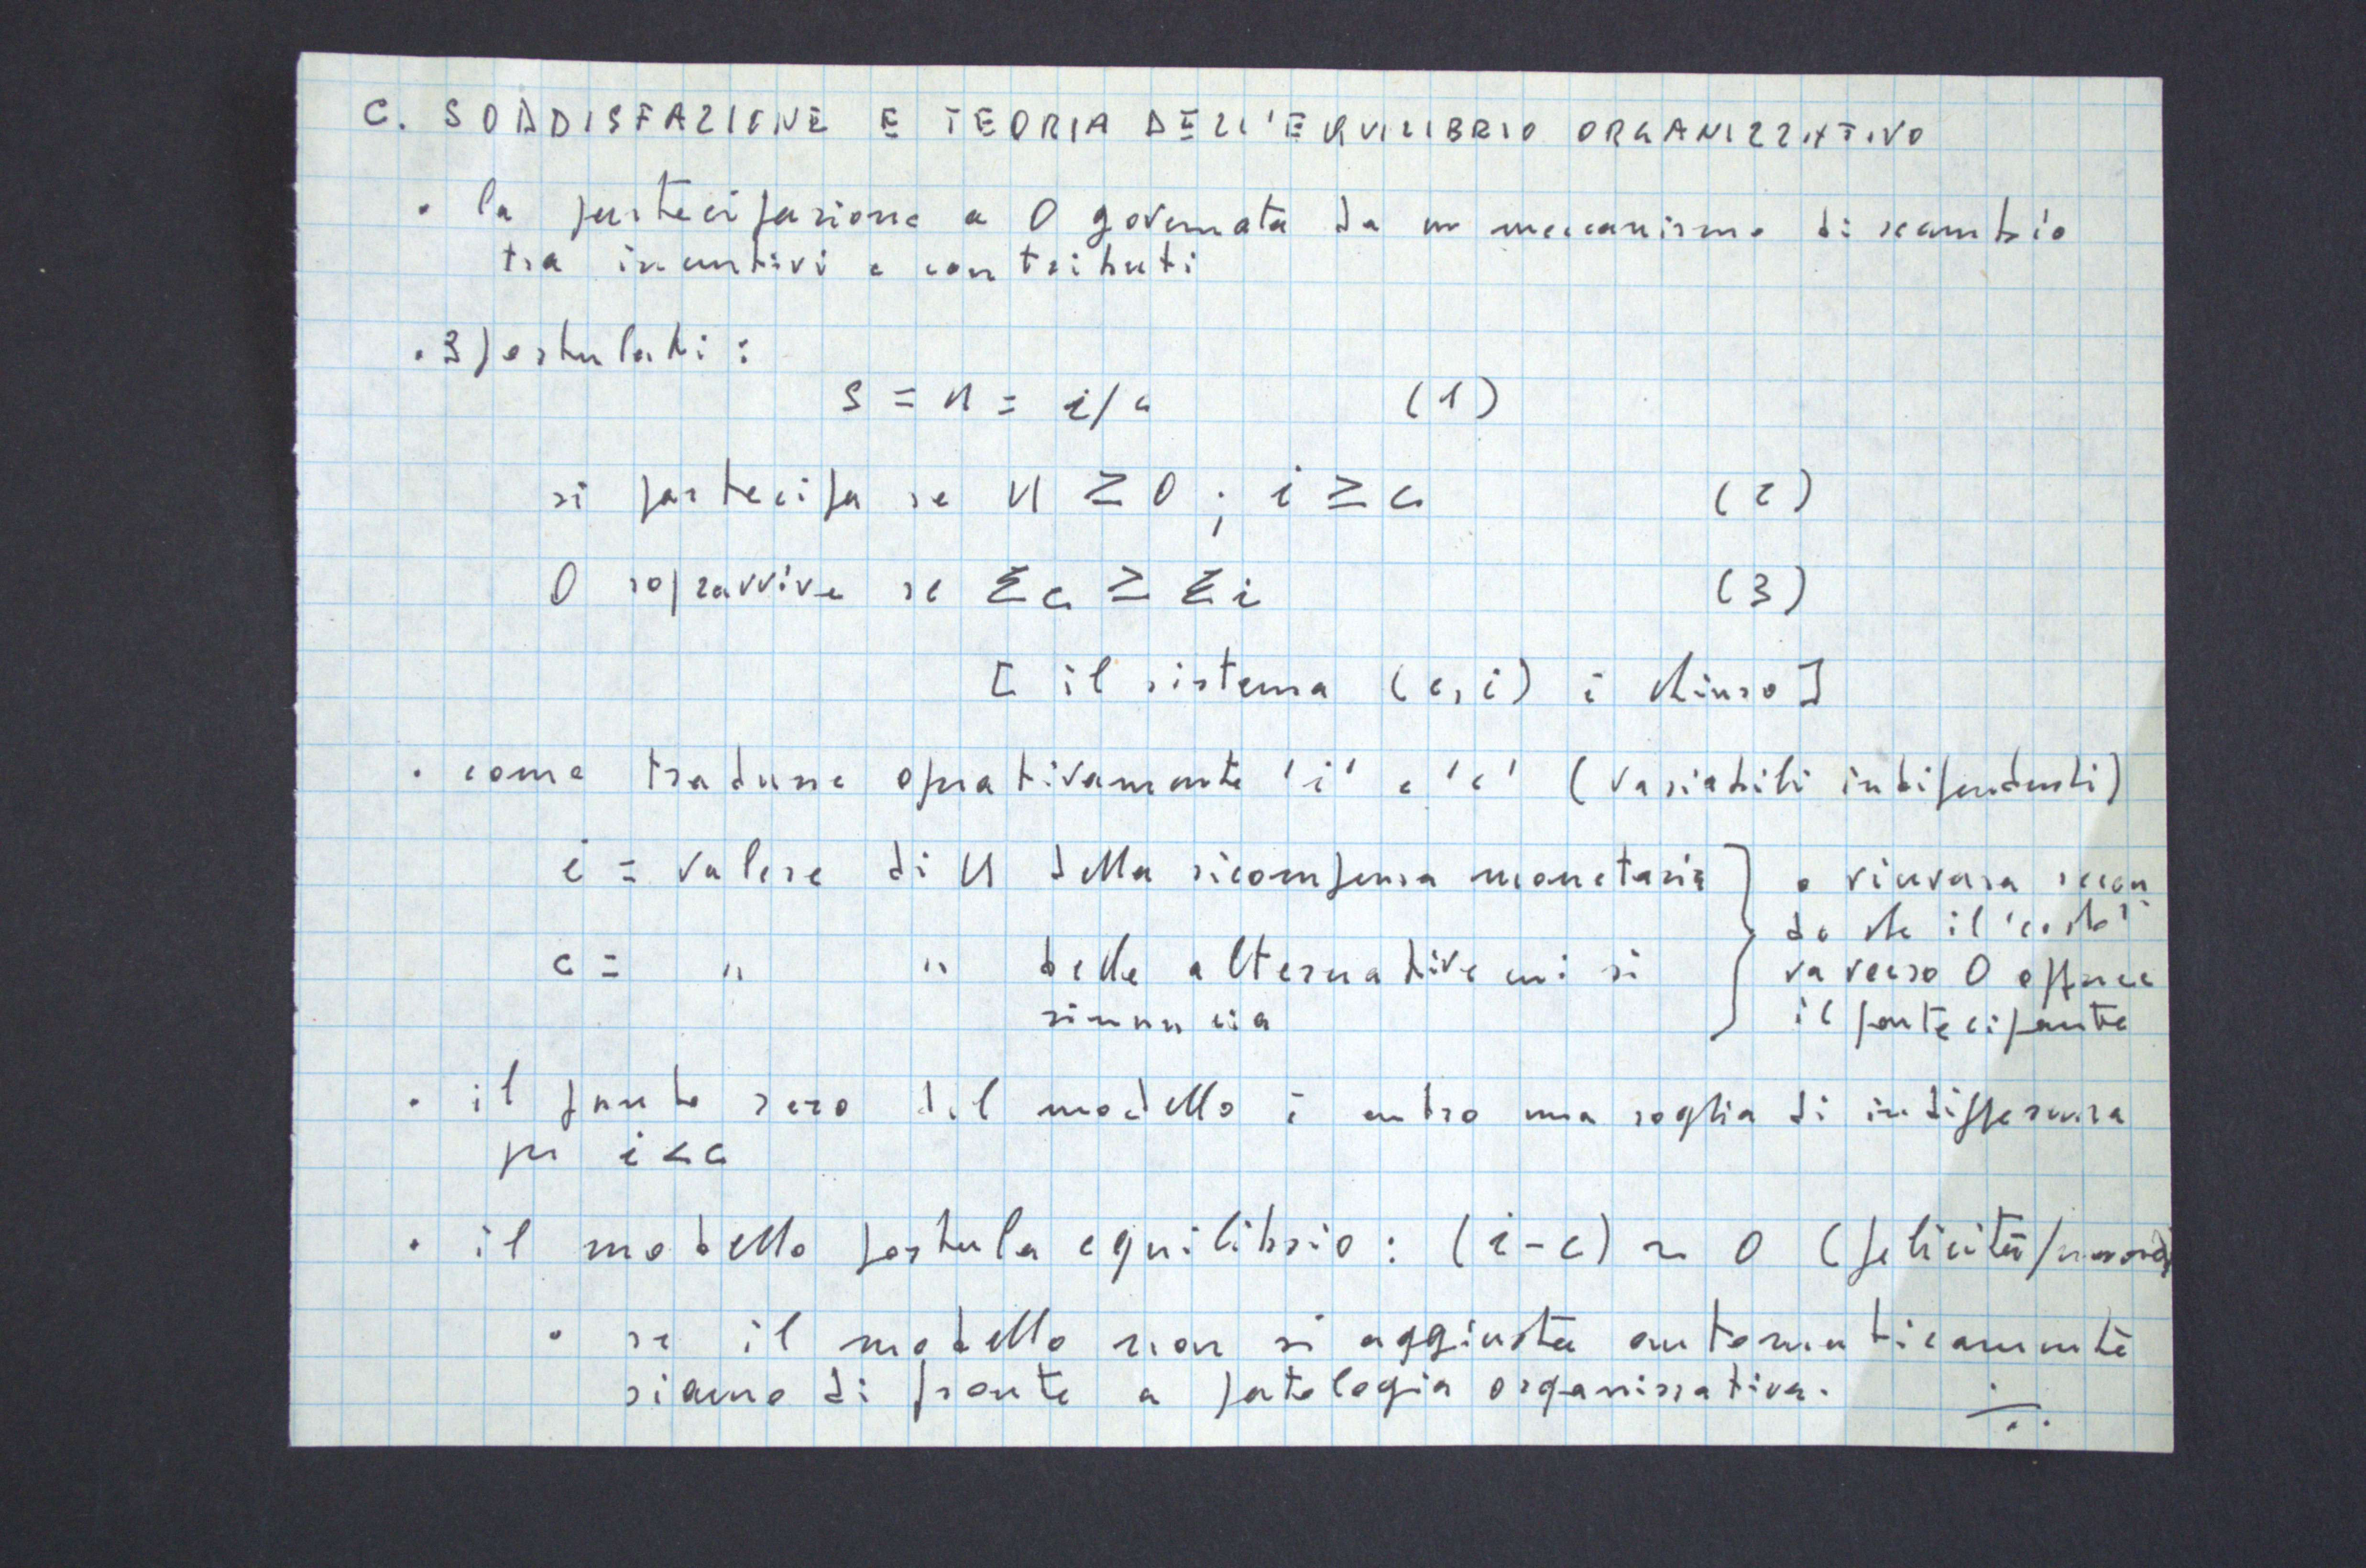 C. SODDISFAZIONE E TEORIA DELL'EQUILIBRIO ORGANIZZATIVO
• la partecipazione a O governata da un meccanismo di scambio
tra incentivi e contributi
• 3 postulati :
S = U = i/c (1)
si partecipa se U ≥ 0 ; i ≥ c (2)
O sopravvive se Σc ≥ Σi (3)
[ il sistema (c, i) è chiuso ]
• come tradurre operativamente 'i' e 'c' (variabili indipendenti)
i = valore di U della ricompensa monetaria } o viceversa secon
do che il 'costo'
c = " " delle alternative cui si va verso O oppure
rinuncia il partecipante
• il punto zero del modello è entro una soglia di indifferenza
per i < c
• il modello postula equilibrio : (i - c) ~ 0 (felicità/
• se il modello non si aggiusta automaticamente
siamo di fronte a patologia organizzativa. ./.